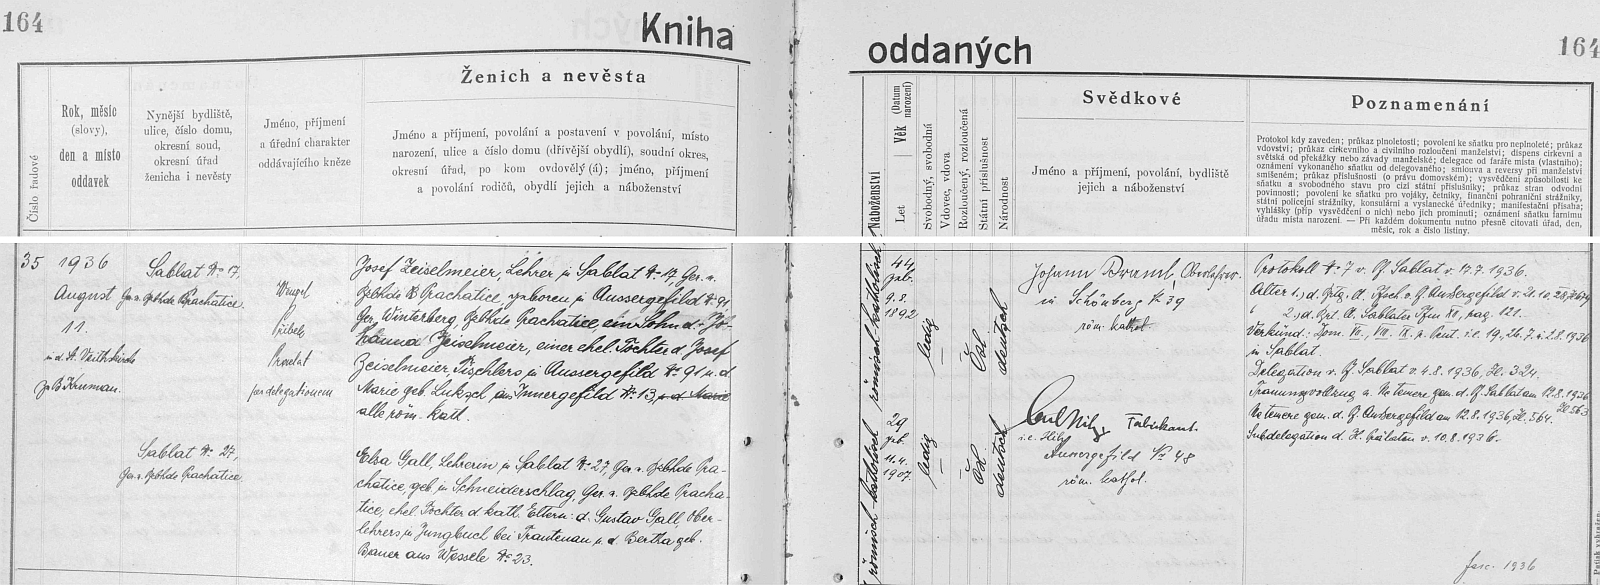 164
Kniha
oddaných
164
Číslo řadové
Rok, měsíc
(slovy),
den a místo
oddavek
Nynější bydliště,
ulice, číslo domu,
okresní soud,
okresní úřad
ženicha i nevěsty
Jméno, příjmení
a úřední charakter
oddávajícího kněze
Ženich a nevěsta
Jméno a příjmení, povolání a postavení v povolání, místo
narození, ulice a číslo domu (dřívější obydlí), soudní okres,
okresní úřad, po kom ovdověl (á); jméno, příjmení
a povolání rodičů, obydlí jejich a náboženství
Náboženství
Let | Věk (Datum narození)
Svobodný, svobodná
Vdovec, vdova
Rozloučený, rozloučená
Státní příslušnost
Národnost
Svědkové
Jméno a příjmení, povolání, bydliště
jejich a náboženství
Poznamenání
Protokol kdy zaveden; průkaz plnoletosti; povolení ke sňatku pro neplnoleté; průkaz
vdovství; průkaz církevního a civilního rozloučení manželství; dispens církevní a
světská od překážky nebo závady manželské; delegace od faráře místa (vlastního);
oznámení vykonaného sňatku od delegovaného; smlouva a reversy při manželství
smíšeném; průkaz příslušnosti (o právu domovském); vysvědčení způsobilosti ke
sňatku a svobodného stavu pro cizí státní příslušníky; průkaz stran odvodní
povinnosti; povolení ke sňatku pro vojáky, četníky, finanční pohraniční strážníky,
státní policejní strážníky, konsulární a vyslanecké úředníky; manifestační přísaha;
vyhlášky (příp. vysvědčení o nich) nebo jich prominutí; oznámení sňatku farnímu
úřadu místa narození. — Při každém dokumentu nutno přesně citovati úřad, den,
měsíc, rok a číslo listiny.
35
1936
August
11.
in d. St. Veitkirche
zu B. Krumau.
Sablat № 17,
Ger. u. Bzbhde Prachatice.
Wenzel
Přibek
Praelat
per delegationem
Josef Zeiselmeier, Lehrer in Sablat № 17, Ger. u.
Bzbhde Prachatice, geboren in Aussergefild № 91
Ger. Winterberg, Bzbhde Prachatice, ein Sohn d. Jo-
hanna Zeiselmeier, einer ehel. Tochter d. Josef
Zeiselmeier, Tischlers in Aussergefild № 91 u. d.
Marie geb. Luksch aus Innergefild № 13, u. d. Marie
alle röm. kath.
römisch-katholisch
44
geb.
9.8.
1892
ledig
Čsl
deutsch
Johann Draxl, Oberlehrer
in Schönberg № 39
röm. kathol.
Protokoll № 7 v. Pf. Sablat v. 17.7.1936.
in Sablat.
Delegation v. Pf. Sablat v. 4.8.1936, Zl. 324.
Trauungsvollzug u. Ne temere gem. d. Pf. Sablat am 12.8.1936 Zl. 563
Ne temere gem. d. Pf. Aussergefild am 12.8.1936, Zl. 564.
Subdelegation d. H. Prälaten v. 10.8.1936.
Sablat № 27,
Ger. u. Bzbhde Prachatice
Elsa Gall, Lehrerin in Sablat № 27, Ger. u. Bzbhde Pra-
chatice, geb. in Schneiderschlag, Ger. u. Bzbhde Pracha-
tice, ehel. Tochter d. kath. Eltern: d. Gustav Gall, Ober-
lehrers in Jungbuch bei Trautenau u. d. Bertha geb.
Bauer aus Wessele № 23.
römisch katholisch
29
geb.
11.4.
1907
ledig
Čsl
deutsch
Fabrikant.
i.e. Hilz
Aussergefild № 48
röm. kathol.
fasc. 1936